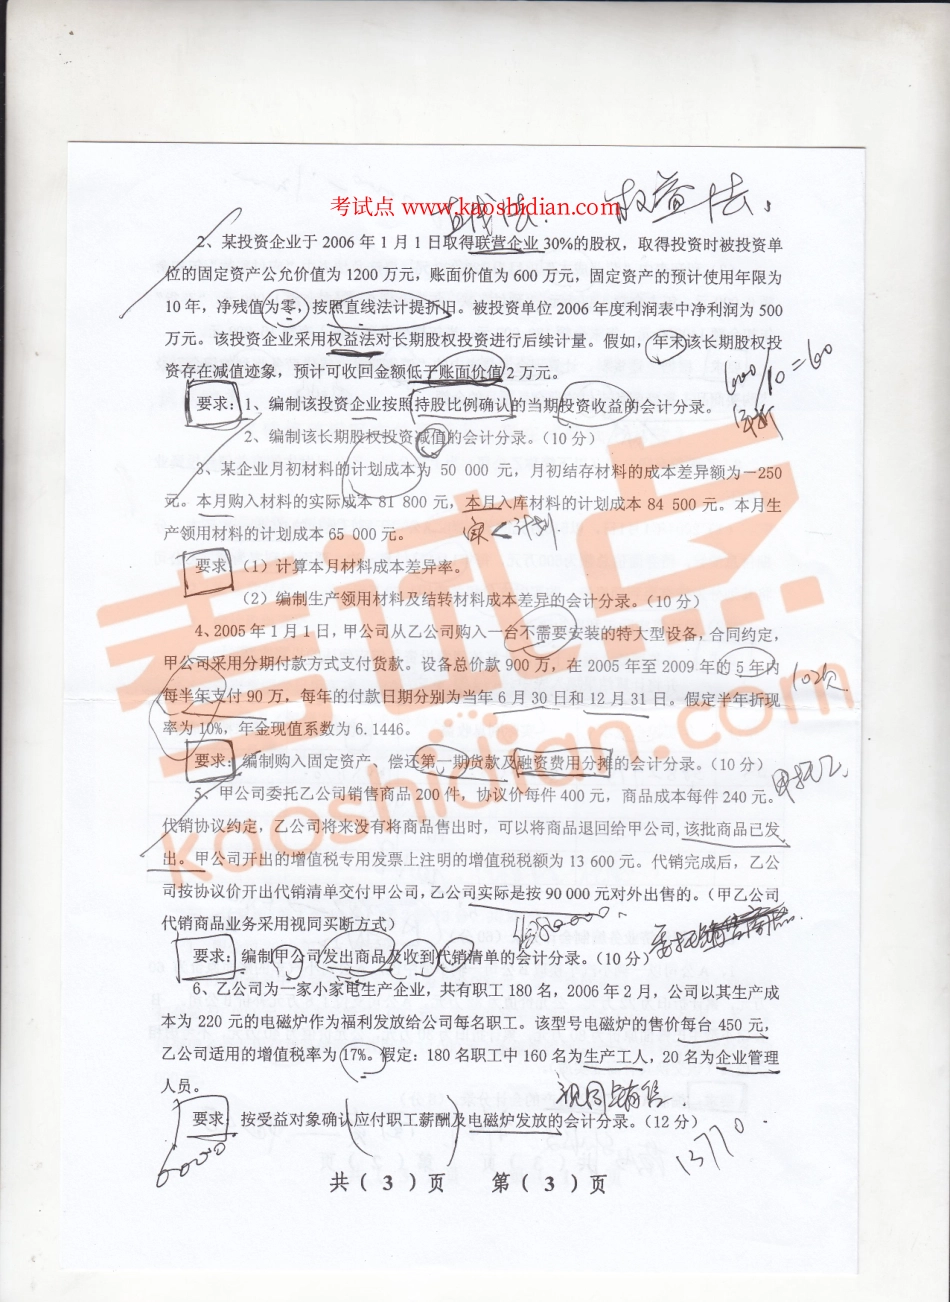 考试点 www.kaoshidian.com
权益法
2、某投资企业于 2006 年 1 月 1 日取得联营企业 30%的股权，取得投资时被投资单
位的固定资产公允价值为 1200 万元，账面价值为 600 万元，固定资产的预计使用年限为
10 年，净残值为零，按照直线法计提折旧。被投资单位 2006 年度利润表中净利润为 500
万元。该投资企业采用权益法对长期股权投资进行后续计量。假如，年末该长期股权投
资存在减值迹象，预计可收回金额低于账面价值 2 万元。
600/10=60
要求：1、编制该投资企业按照持股比例确认的当期投资收益的会计分录。
2、编制该长期股权投资减值的会计分录。（10 分）
3、某企业月初材料的计划成本为 50 000 元，月初结存材料的成本差异额为－250
元。本月购入材料的实际成本 81 800 元，本月入库材料的计划成本 84 500 元。本月生
产领用材料的计划成本 65 000 元。
实<计划
要求（1）计算本月材料成本差异率。
（2）编制生产领用材料及结转材料成本差异的会计分录。（10 分）
4、2005 年 1 月 1 日，甲公司从乙公司购入一台不需要安装的特大型设备，合同约定，
甲公司采用分期付款方式支付货款。设备总价款 900 万，在 2005 年至 2009 年的 5 年内
每半年支付 90 万，每年的付款日期分别为当年 6 月 30 日和 12 月 31 日。假定半年折现
10次
率为 10%，年金现值系数为 6.1446。
要求：编制购入固定资产、偿还第一期货款及融资费用分摊的会计分录。（10 分）
甲托乙
5、甲公司委托乙公司销售商品 200 件，协议价每件 400 元，商品成本每件 240 元。
代销协议约定，乙公司将来没有将商品售出时，可以将商品退回给甲公司，该批商品已发
出。甲公司开出的增值税专用发票上注明的增值税税额为 13 600 元。代销完成后，乙公
司按协议价开出代销清单交付甲公司，乙公司实际是按 90 000 元对外出售的。（甲乙公司
代销商品业务采用视同买断方式）
要求：编制甲公司发出商品及收到代销清单的会计分录。（10 分）
6、乙公司为一家小家电生产企业，共有职工 180 名，2006 年 2 月，公司以其生产成
本为 220 元的电磁炉作为福利发放给公司每名职工。该型号电磁炉的售价每台 450 元，
乙公司适用的增值税率为 17%。假定：180 名职工中 160 名为生产工人，20 名为企业管理
人员。
视同销售
要求：按受益对象确认应付职工薪酬及电磁炉发放的会计分录。（12 分）
13770
共（ 3 ）页 第（ 3 ）页
考试点
kaoshidian.com